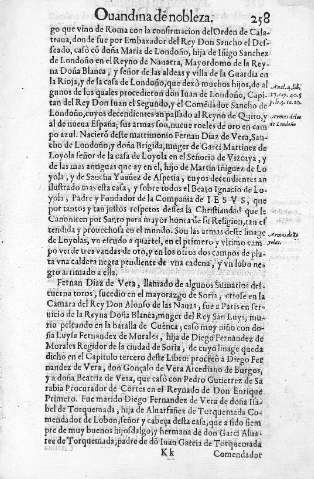 Ouandina de nobleza. 258
go que vino de Roma con la confirmacion del Orden de Cala-
traua, don de fue por Embaxador del Rey Don Sancho el Des-
seado, casò cō doña Maria de Londoño, hija de Iñigo Sanchez
de Londoño en el Reyno de Nauarra, Mayordomo de la Rey-
na Doña Blanca, y señor de las aldeas y villa de la Guardia en
la Rioja, y de la casa de Londoño, que dexò muchos hijos, de al-
gunos de los quales procedieron don Iuan de Londoño, Capi-
tan del Rey Don Iuan el Segundo, y el Comēdador Sancho de
Londoño, cuyos decendientes an passado al Reyno de Quito, y
al de nueua España, sus armas son, nueue roeles de oro en cam-
po azul. Naciero deste matrimonio Fernan Diaz de Vera, San-
cho de Londoño, y doña Brigida, muger de Garci Martinez de
Loyola señor de la casa de Loyola en el Señorio de Vizcaya, y
de las mas antiguas que ay en el, hijo de Martin Iñiguez de Lo-
yola, y de Sancha Yuañez de Aspetia, cuyos decendientes an
ilustrado mas esta casa, y sobre todos el Beato Ignacio de Lo-
yola, Padre y Fundador de la Compañia de IESVS, que
por tantos y tan justos respetos dessea la Christiandad que le
Canonicen por Santo para mayor honra de su Religion, tan es-
tendida y prouechosa en el mundo. Son las armas deste linage
de Loyolas, vn escudo a quartel, en el primero y vltimo cam-
po verde tres vandas de oro, y en los otros dos campos de pla-
ta vna caldera negra pendiente de vna cadena, y vn lobo ne-
gro arrimado a ella.
Fernan Diaz de Vera, llamado de algunos Sumarios del
cuerno toros, sucedio en el mayorazgo de Soria, en la
Camara del Rey Don Alonso de las Nauas, fue a Paris en ser-
uicio de la Reyna Doña Blanca, muger del Rey San Luys, mu-
rio peleando en la batalla de Cuenca, casò muy niño con do-
ña Luysa Fernandez de Morales, hija de Diego Fernandez de
Morales Regidor de la ciudad de Soria, de cuyo linage queda
dicho en el Capitulo tercero deste Libro: procreò a Diego Fer
nandez de Vera, don Gonçalo de Vera Arcediano de Burgos,
y a doña Beatriz de Vera, que casò con Pedro Gutierrez de Sa
rabia Procurador de Cortes en el Reynado de Don Enrique
Primero. Fue marido Diego Fernandez de Vera de doña Isa-
bel de Torquemada, hija de Aluarfañez de Torquemada Co-
mendador de Lobon, señor y cabeça desta casa, que a sido siem
pre de muy buenos hijosdalgo, y hermana de don Garci Aluar
rez de Torquemada, padre de dō Iuan Garcia de Torquemada
Kk Comendador